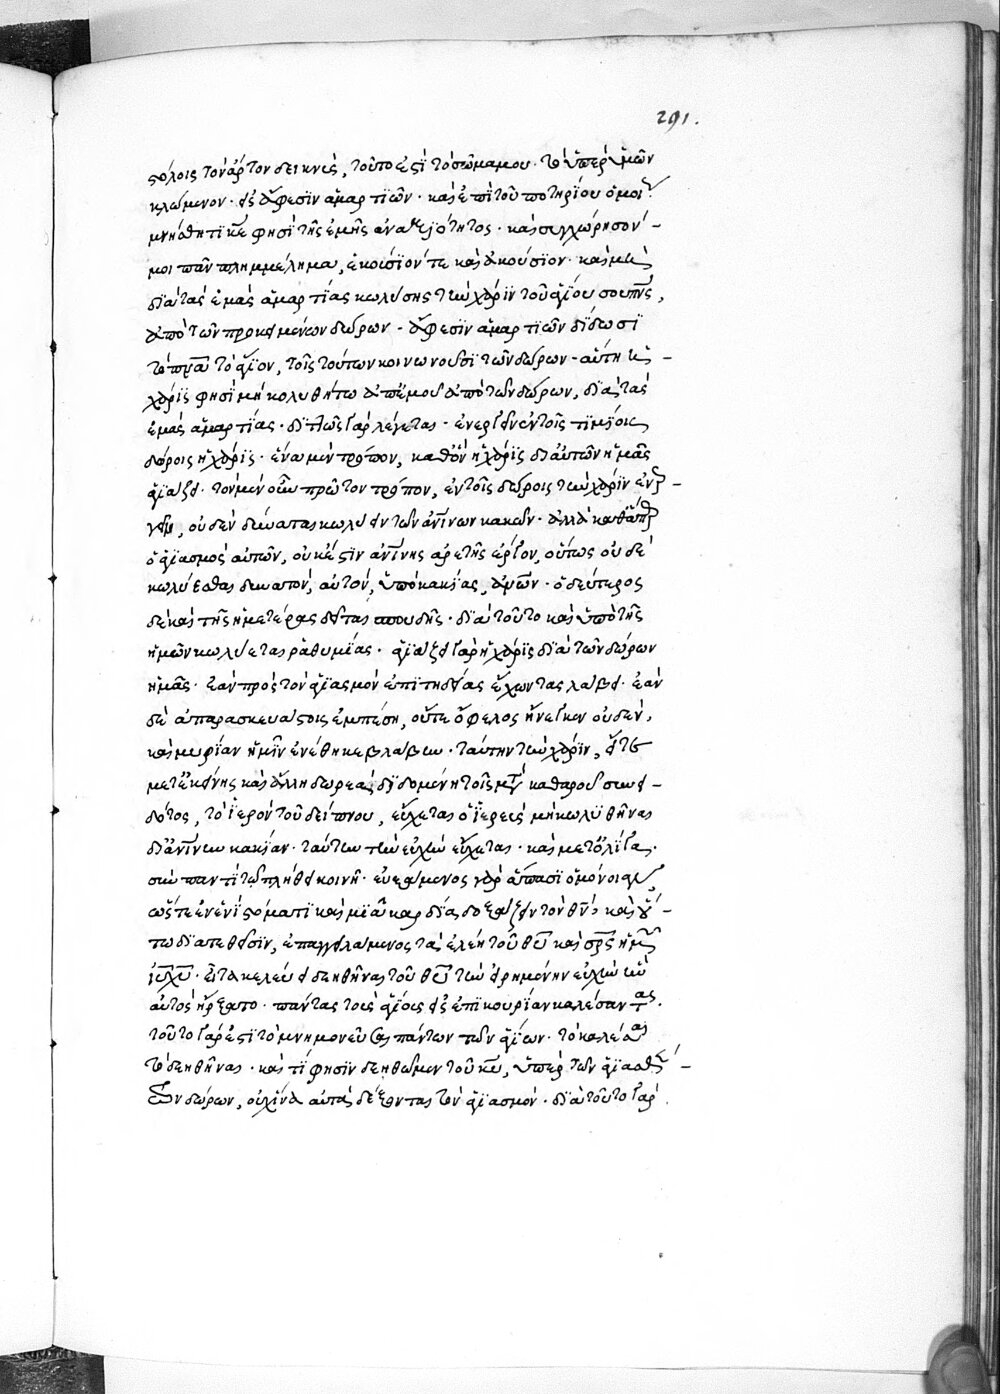 291.
στόλοις τὸν ἄρτον δεικνὺς, τοῦτο ἐστὶ τὸ σῶμα μου· τὸ ὑπὲρ ὑμῶν
κλώμενον· εἰς ἄφεσιν ἁμαρτιῶν· καὶ ἐπὶ τοῦ ποτηρίου ὁμοί
μνήσθητι κε φησὶ τῆς ἐμῆς ἀναξιότητος· καὶ συγχώρησον
μοι πᾶν πλημμέλημα, ἑκούσιόν τε καὶ ἀκούσιον· καὶ μὴ
διὰ τὰς ἐμὰς ἁμαρτίας κωλύσης τὴν χάριν τοῦ ἁγίου σου πνς,
ἀπὸ τῶν προκειμένων δώρων - ἄφεσιν ἁμαρτιῶν δίδωσι
τὸ πνα τὸ ἅγιον, τοῖς τούτων κοινωνοῦσι τῶν δώρων - αὕτη ἡ
χάρις φησὶ μὴ κολυθήτω ἀπ' ἐμοῦ ἀπὸ τῶν δώρων, διὰ τὰς
ἐμὰς ἁμαρτίας· διττῶς γὰρ λέγεται· ἐνεργεῖν ἐν τοῖς τιμίοις
δώροις ἡ χάρις· ἕνα μὲν τρόπον, καθ' ὃν ἡ χάρις δι αὐτῶν ἡμᾶς
ἁγιάζει· τὸν μὲν οὖν πρῶτον τρόπον, ἐν τοῖς δώροις τὴν χάριν ἐνερ
γεῖν, οὐδὲν δύναται κωλύειν τῶν ἀνίνων κακῶν· ἀλλὰ καθάπερ
ὁ ἁγιασμὸς αὐτῶν, οὐκ ἔστιν ἀνίνης ἀρετῆς ἔργον, οὕτως οὐδὲ
κωλύεσθαι δυνατὸν, αὐτὸν, ὑπὸ κακίας, ἀνων· ὁ δεύτερος
δὲ καὶ τῆς ἡμετέρας δεῖται σπουδῆς· διὰ τοῦτο καὶ ὑπὸ τῆς
ἡμῶν κωλύεται ῥᾳθυμίας· ἁγιάζει γὰρ ἡ χάρις διὰ τῶν δώρων
ἡμᾶς· ἐὰν πρὸς τὸν ἁγιασμὸν ἐπιτηδείας ἔχοντας λάβει· ἐὰν
δὲ ἀπαρασκευάστοις ἐμπέση, οὔτε ὄφελος ἤνεγκεν οὐδὲν,
καὶ μυρίαν ἡμῖν ἐνέθηκε βλάβην· ταύτην τὴν χάριν,
μετ' ἐκείνης καὶ ἄλλη δωρεὰ, διδομένη τοῖς μετὰ καθαροῦ συνει -
δότος, τὸ ἱερὸν τοῦ δείπνου, εὔχεται ὁ ἱερεὺς μὴ κωλυθῆναι
δι ἀνίνην κακίαν· ταύτην τὴν εὐχὴν εὔχεται· καὶ μετ' ὀλίγα·
σὺν παντὶ τῷ πλήθει κοινῆ· εὐξάμενος γὰρ ἅπασι ὁμόνοιαν,
ὥστε ἐν ἑνὶ στόματι καὶ μιᾶ καρδία δοξάζειν τὸν θν· καὶ οὕ -
τω διατεθεῖσιν, ἐπαγγειλάμενος τὰ ἐλέη τοῦ θυ καὶ σρς ἡμῶν
ιυ χυ· εἶτα κελεύει δεηθῆναι τοῦ θυ τὴν εἰρημένην εὐχὴν ἣν
αὐτὸς ηὔξατο· πάντας τοὺς ἁγίους εἰς ἐπικουρίαν καλέσαντας·
τοῦτο γάρ ἐστι τὸ μνημονεῦσαι πάντων τῶν ἁγίων· τὸ καλέσαι
τὸ δεηθῆναι· καὶ τί φησιν δεηθῶμεν τοῦ κυ, ὑπὲρ τῶν ἁγιασθέν -
των δώρων, οὐχ ἵνα αὐτὰ δέξωνται τὸν ἁγιασμόν· διὰ τοῦτο γὰρ